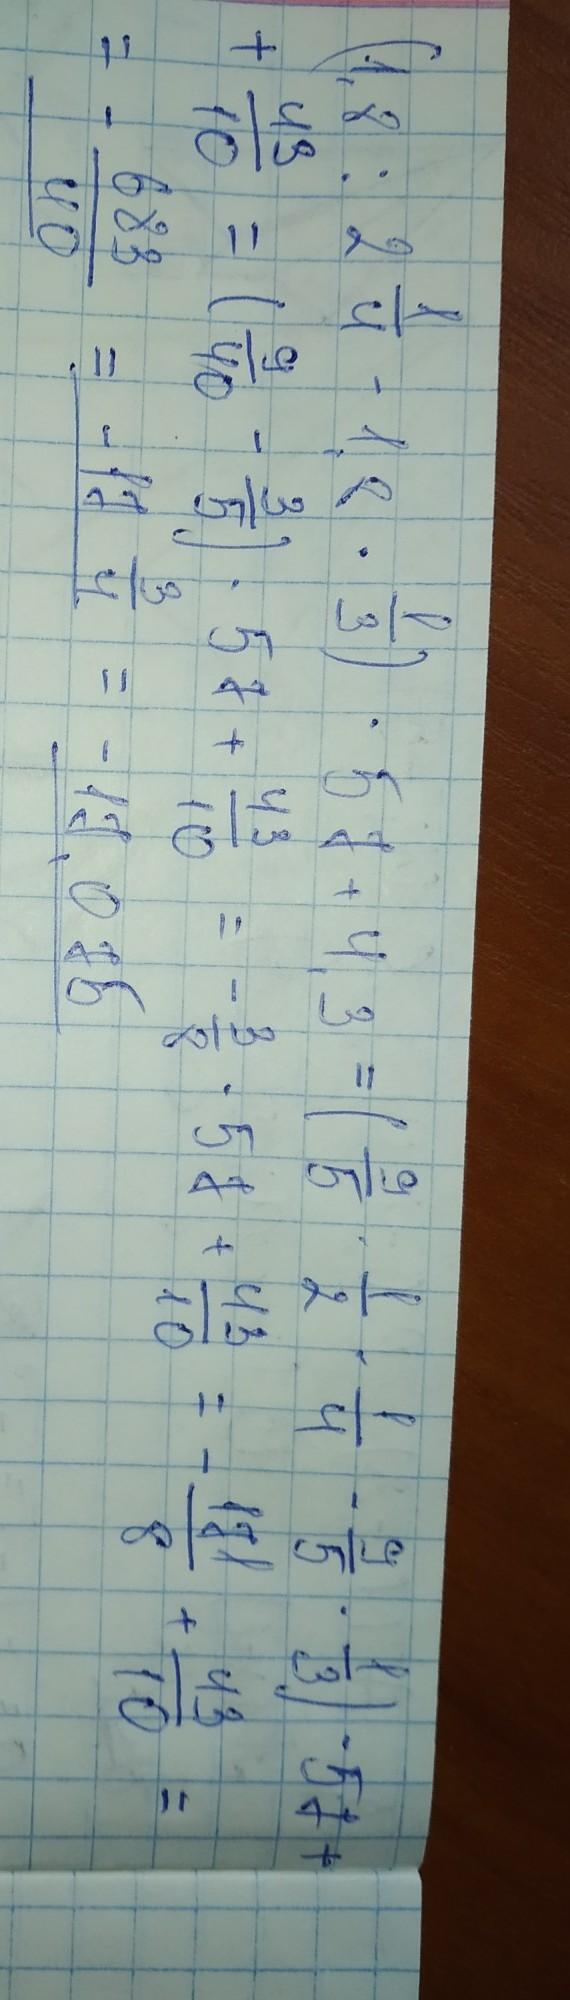 (1,8 : 2 1/4 - 1,8 · 1/3) · 57 + 4,3 = (9/5 · 1/2 · 1/4 - 9/5 · 1/3) · 57 +
+ 43/10 = (9/40 - 3/5) · 57 + 43/10 = - 3/8 · 57 + 43/10 = - 171/8 + 43/10 =
= - 683/40 = - 17 3/4 = - 17,075